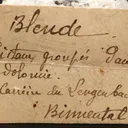 Blende
groupés dans
dolomie.
Carrière du Lengenbach
Binnental